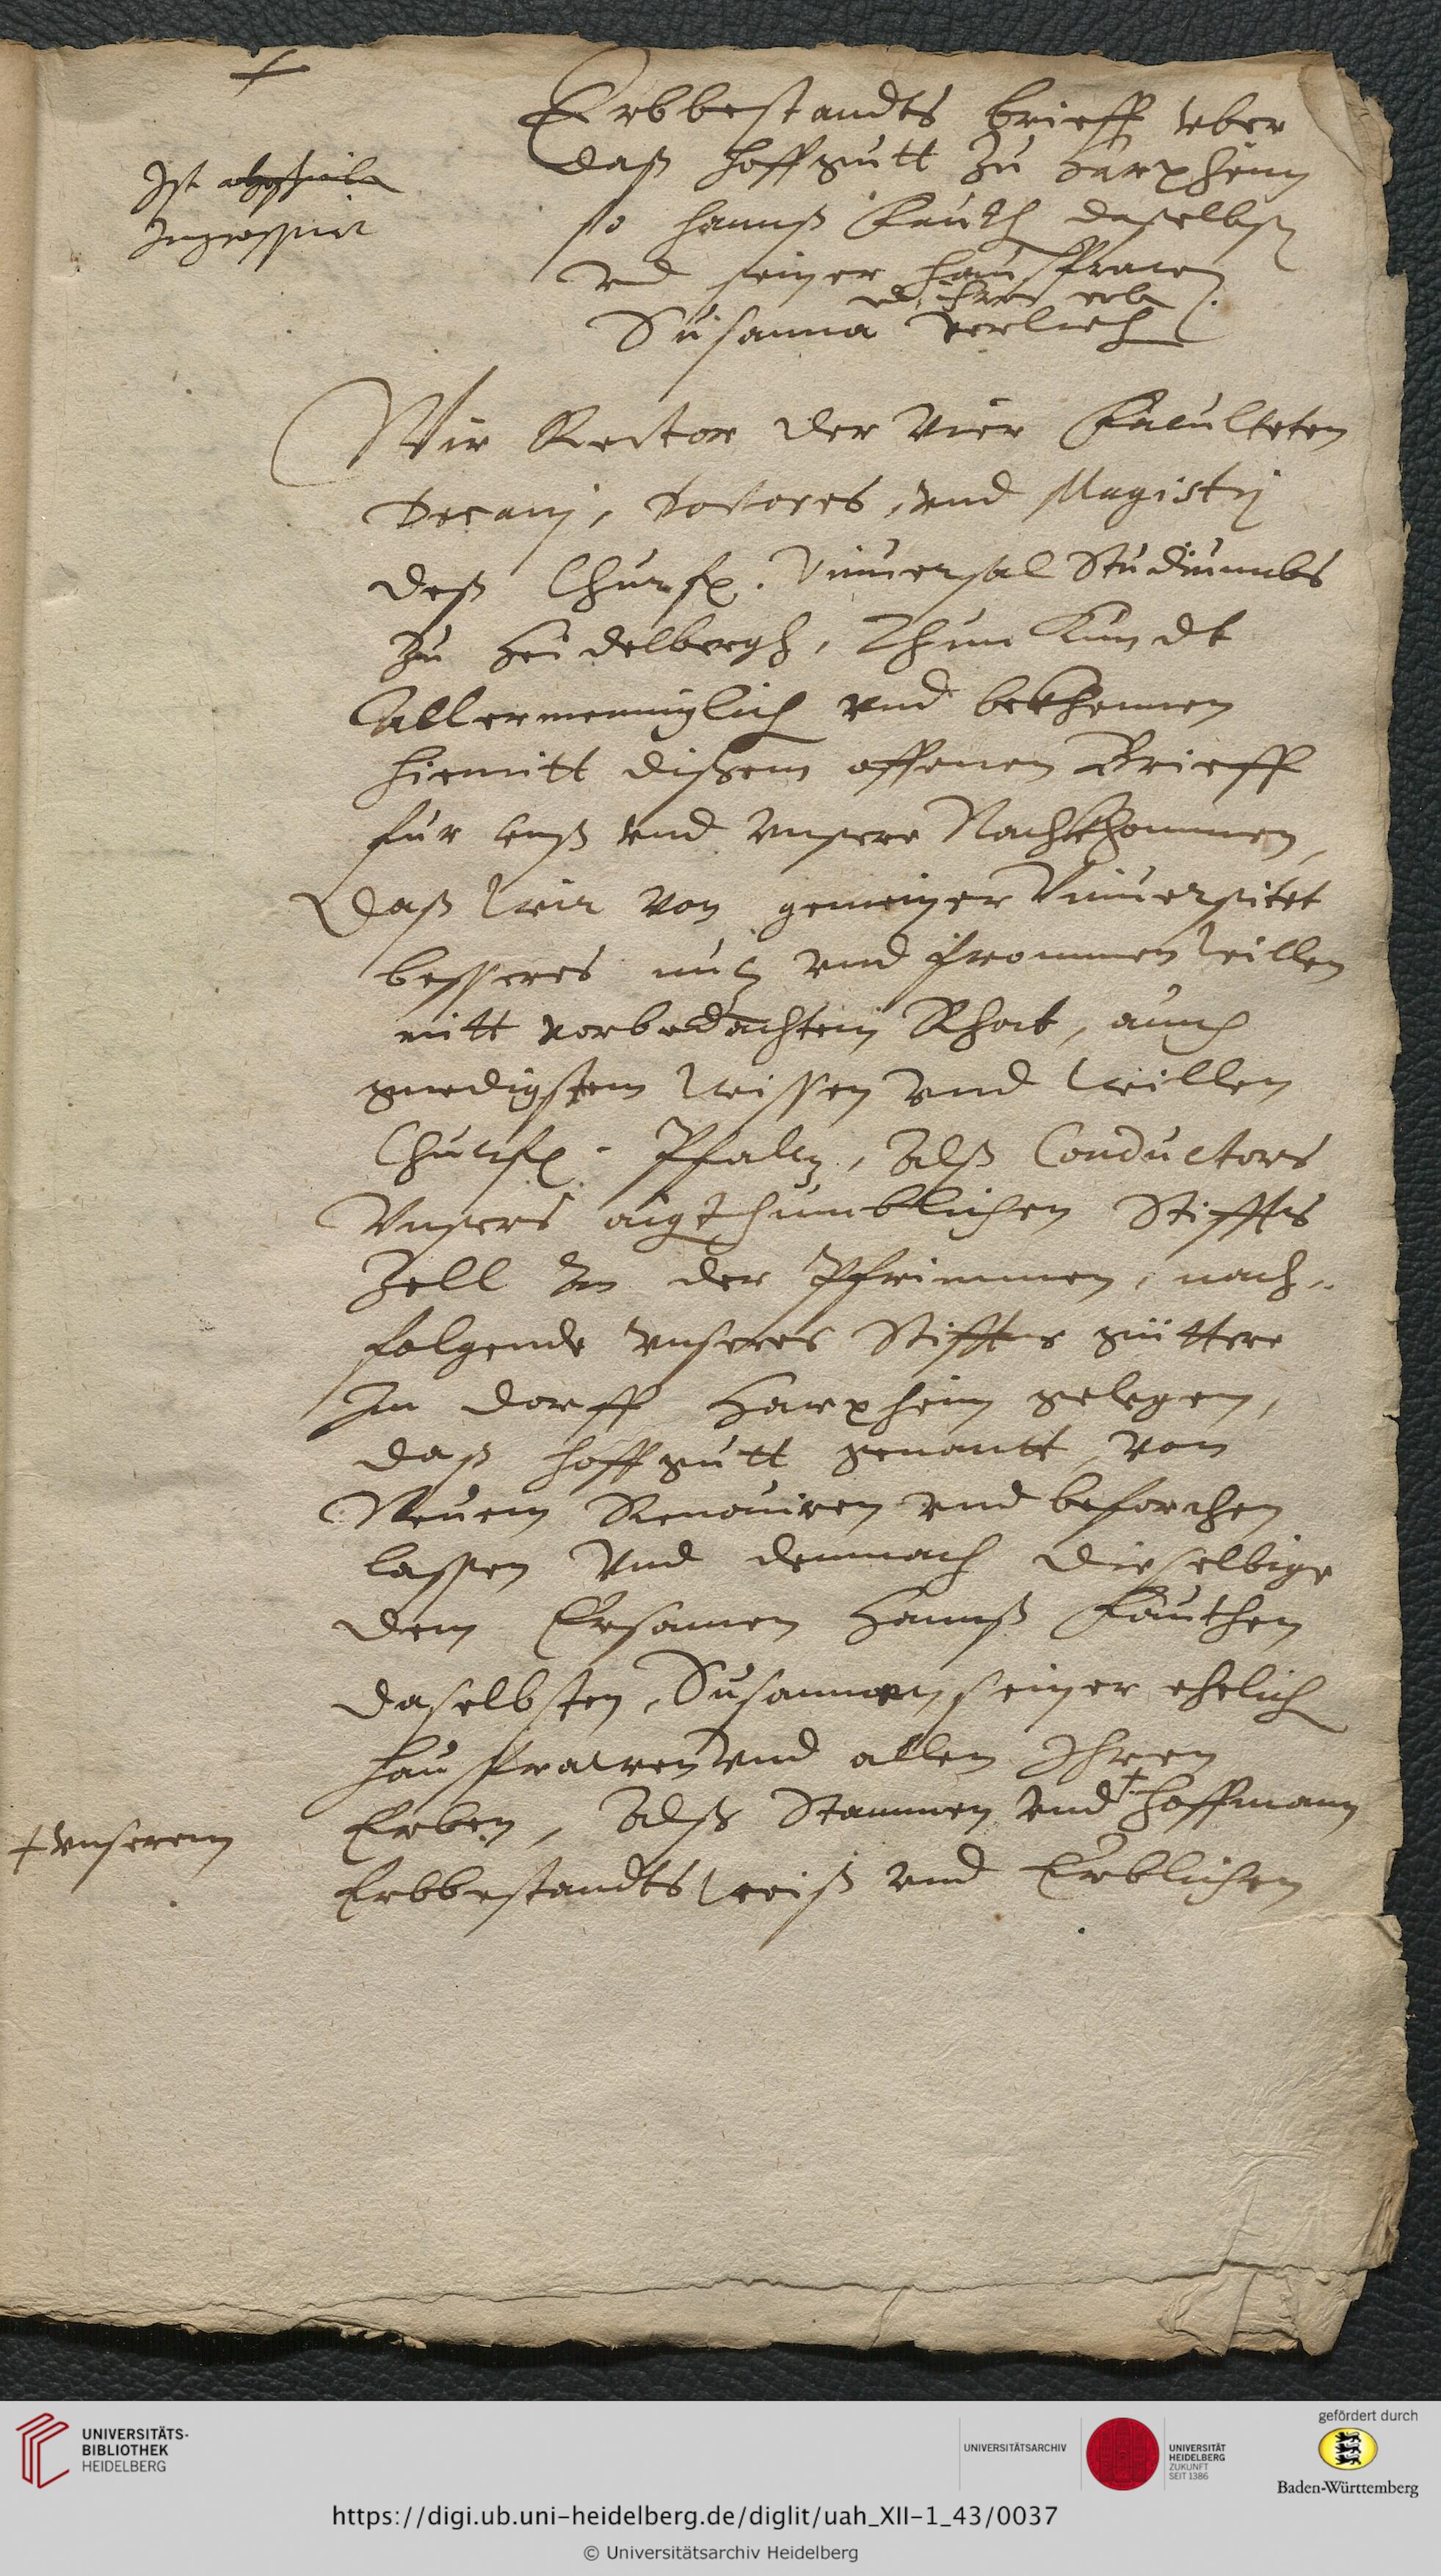 Erbbestandts brieff vber
daß hoffgutt zu Harxheim
so Hannß Fauth daselbst
vnd seiner haußfrawen
vnd ihren erben
Susanna verlieh
Ist
Ingrossirt
Wir Rector der vier Faculteten
Decanj, Doctores, vnd Magistrj
deß Churfl. Vniuersal Studiumbs
zu Heidelbergh, Thun Kundt
Allermenniglich vnd bekhennen
hiemitt dißem offenen Brieff
für vnß vnd vnsere Nachkhommen,
Daß wir von gemeiner Vniuersitet
besseres nutz vnd frommen willen
mitt vorbedachtem Rhat, auch
gnedigstem wissen vnd willen
Churfl. Pfaltz, Alß Conductors
Vnsers aigthumblichen Stiffts
Zell In der Pfrimmen, nach-
folgende vnseres Stiffts güttere
Im dorff Harxheim gelegen,
daß hoffgutt genantt, von
Neuem Renouiren vnd beforchen
lassen Vnd demnach dieselbige
dem Ersamen Hannß Fauthen
daselbsten, Susannen seiner ehelich
haußfrawen vnd allen Ihren
Erben, Alß Stammen vnd + hoffmann
+ vnserem
Erbbestandts weiß vnd Erblichen
UNIVERSITÄTS-
BIBLIOTHEK
HEIDELBERG
UNIVERSITÄTSARCHIV
UNIVERSITÄT
HEIDELBERG
ZUKUNFT
SEIT 1386
gefördert durch
Baden-Württemberg
https://digi.ub.uni-heidelberg.de/diglit/uah_XII-1_43/0037
© Universitätsarchiv Heidelberg